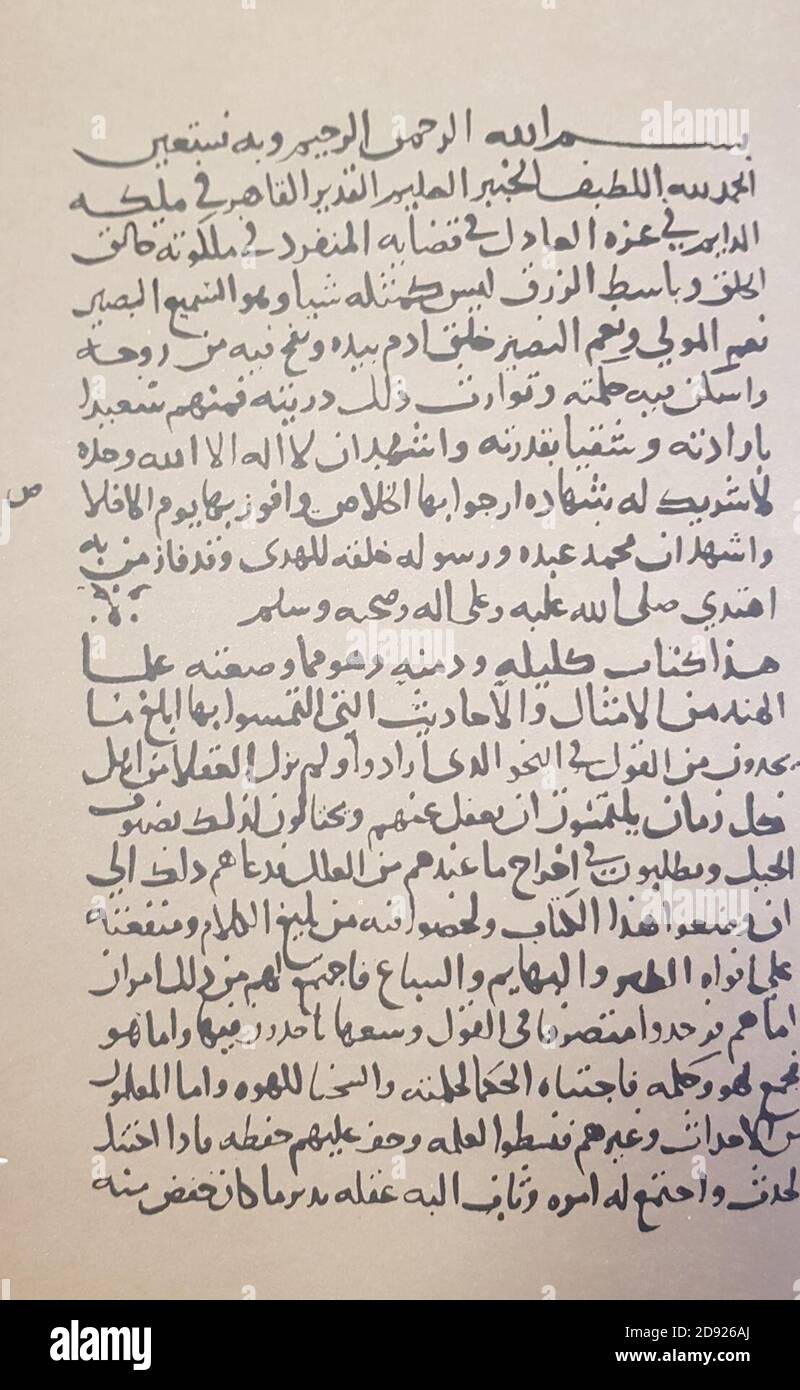 بسم الله الرحمن الرحيم وبه نستعين
الحمد لله اللطيف الخبير العليم القدير القاهر في ملكه
الدايم في عزه العادل في قضايه المنفرد في ملكوته خالق
الخلق وباسط الرزق ليس كمثله شيا وهو السميع البصير
نعم المولي ونعم النصير خلق ادم بيده ونفخ فيه من روحه
واسكن فيه حكمته وتوارث ذلك دريته فمنهم سعيدا
بارادته وشقيا بقدرته واشهد ان لا اله الا الله وحده
لا شريك له شهاده ارجوا بها الخلاص وافوز بها يوم الافلا
ص
واشهد ان محمد عبده ورسوله خلقه للهدى وقد فاز من به
اهتدي صلى الله عليه وعلى اله وصحبه وسلم
هذا كتاب كليله ودمنه وهو مما وضعته علما
الهند من الامثال والاحاديث التي التمسوا بها ابلغ ما
يجدون من القول في النحو الدى ارادوا ولم يزل العقلا من اهل
كل زمان يلتمسون ان يعقل عنهم ويحتالون لذلك بصنوف
الحيل ويطلبون في اخراج ما عندهم من العلل فدعاهم دلك الي
ان وضعوا هذا الكتاب ولخصوا فيه من بليغ الكلام ومتقنه
علي افواه الطير والبهايم والسباع فاجتمع لهم من دلك امران
اما هم فوجدوا متصرفا في القول وسعها ياخدون فيها واما هو
فجمع لهو وحكمه فاجتباه الحكما لحكمته والسخفا للهوه واما المتعلمون
من الاحداث وغيرهم فنشطوا لعلمه وخف عليهم حفظه فادا احتنك
الحدث واجتمع له امره وثاب اليه عقله تدبر ما كان حفض منه
alamy
Image ID: 2D926AJ
www.alamy.com